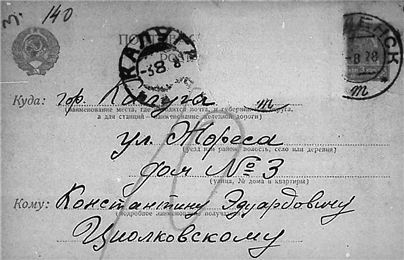 з. 140
КАЛУГА
-8 8
-8 28
Куда: гор. Калуга
(наименование места, где находится почта, и губернии или округа,
а для станций — наименование железной дороги)
ул. Жореса
(уезд или район, волость, село или деревня)
дом № 3
(улица, № дома и квартиры)
Кому: Константину Эдуардовичу
(подробное наименование получателя)
Циолковскому